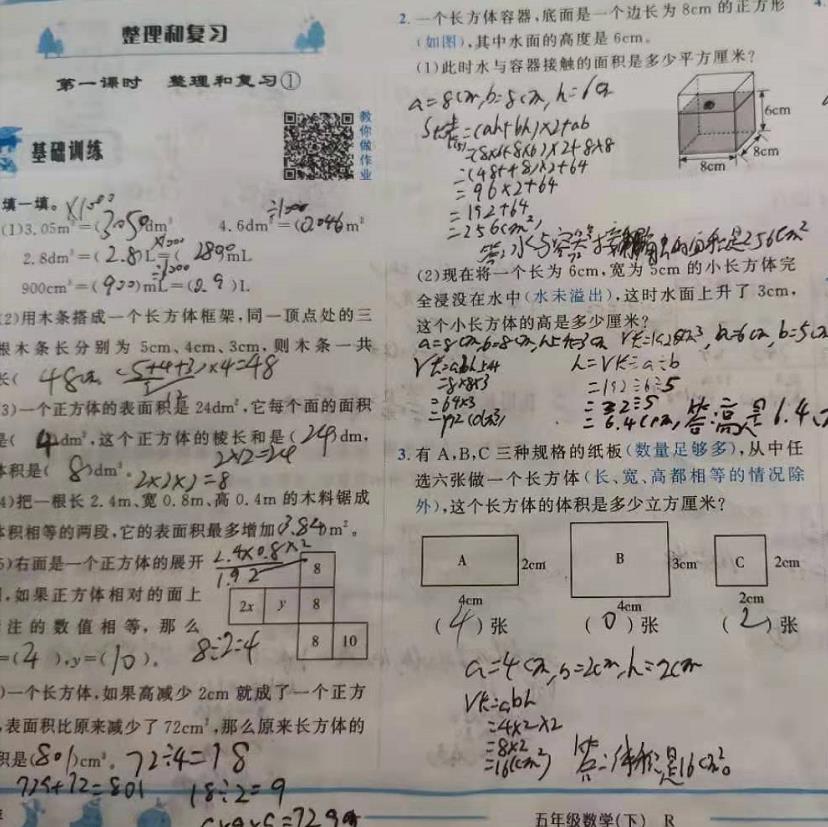 整理和复习
第一课时 整理和复习①
教你做作业
基础训练
填一填。×1000
(1)3.05m³=(3050)dm³ 4.6dm²=(0.046)m²
÷100
2.8dm³=(2.8)L=(2800)mL
×1000
÷1000
900cm³=(900)mL=(0.9)L
(2)用木条搭成一个长方体框架,同一顶点处的三
根木条长分别为 5cm、4cm、3cm,则木条一共
长( 48cm (5+4+3)×4=48
3)一个正方体的表面积是 24dm²,它每个面的面积
是( 4 )dm²,这个正方体的棱长和是(24)dm,
2×12=24
体积是( 8 )dm³。2×2×2=8
4)把一根长 2.4m、宽 0.8m、高 0.4m 的木料锯成
体积相等的两段,它的表面积最多增加(3.84)m²。
2.4×0.8×2
1.92
5)右面是一个正方体的展开
,如果正方体相对的面上
注的数值相等,那么
=(4),y=(10)。 8÷2=4
8
2x y 8
8 10
)一个长方体,如果高减少 2cm 就成了一个正方
,表面积比原来减少了 72cm²,那么原来长方体的
积是(801)cm³。72÷4=18
729+72=801 18÷2=9
=729
2.一个长方体容器,底面是一个边长为 8cm 的正方形
(如图),其中水面的高度是 6cm。
(1)此时水与容器接触的面积是多少平方厘米?
a=8cm,b=8cm,h=6cm
=(ah+bh)×2+ab
=(8×6+8×6)×2+8×8
=(48+48)×2+64
=96×2+64
=192+64
=256(cm²)
答:水与容器接触的面积是256cm²
6cm
8cm
8cm
(2)现在将一个长为 6cm,宽为 5cm 的小长方体完
全浸没在水中(水未溢出),这时水面上升了 3cm,
这个小长方体的高是多少厘米?
a=8cm,b=8cm,h=3cm V长=192cm³,a=6cm,b=5cm
V长=abh h=V长÷a÷b
=8×8×3 =192÷6÷5
=64×3 =32÷5
=192(cm³) =6.4(cm)答:高是6.4
3.有 A,B,C 三种规格的纸板(数量足够多),从中任
选六张做一个长方体(长、宽、高都相等的情况除
外),这个长方体的体积是多少立方厘米?
A 2cm B 3cm C 2cm
4cm 4cm 2cm
(4)张 (0)张 (2)张
a=4cm,b=2cm,h=2cm
V长=abh
=4×2×2
=8×2
=16(cm³) 答:体积是16cm³。
五年级数学(下) R